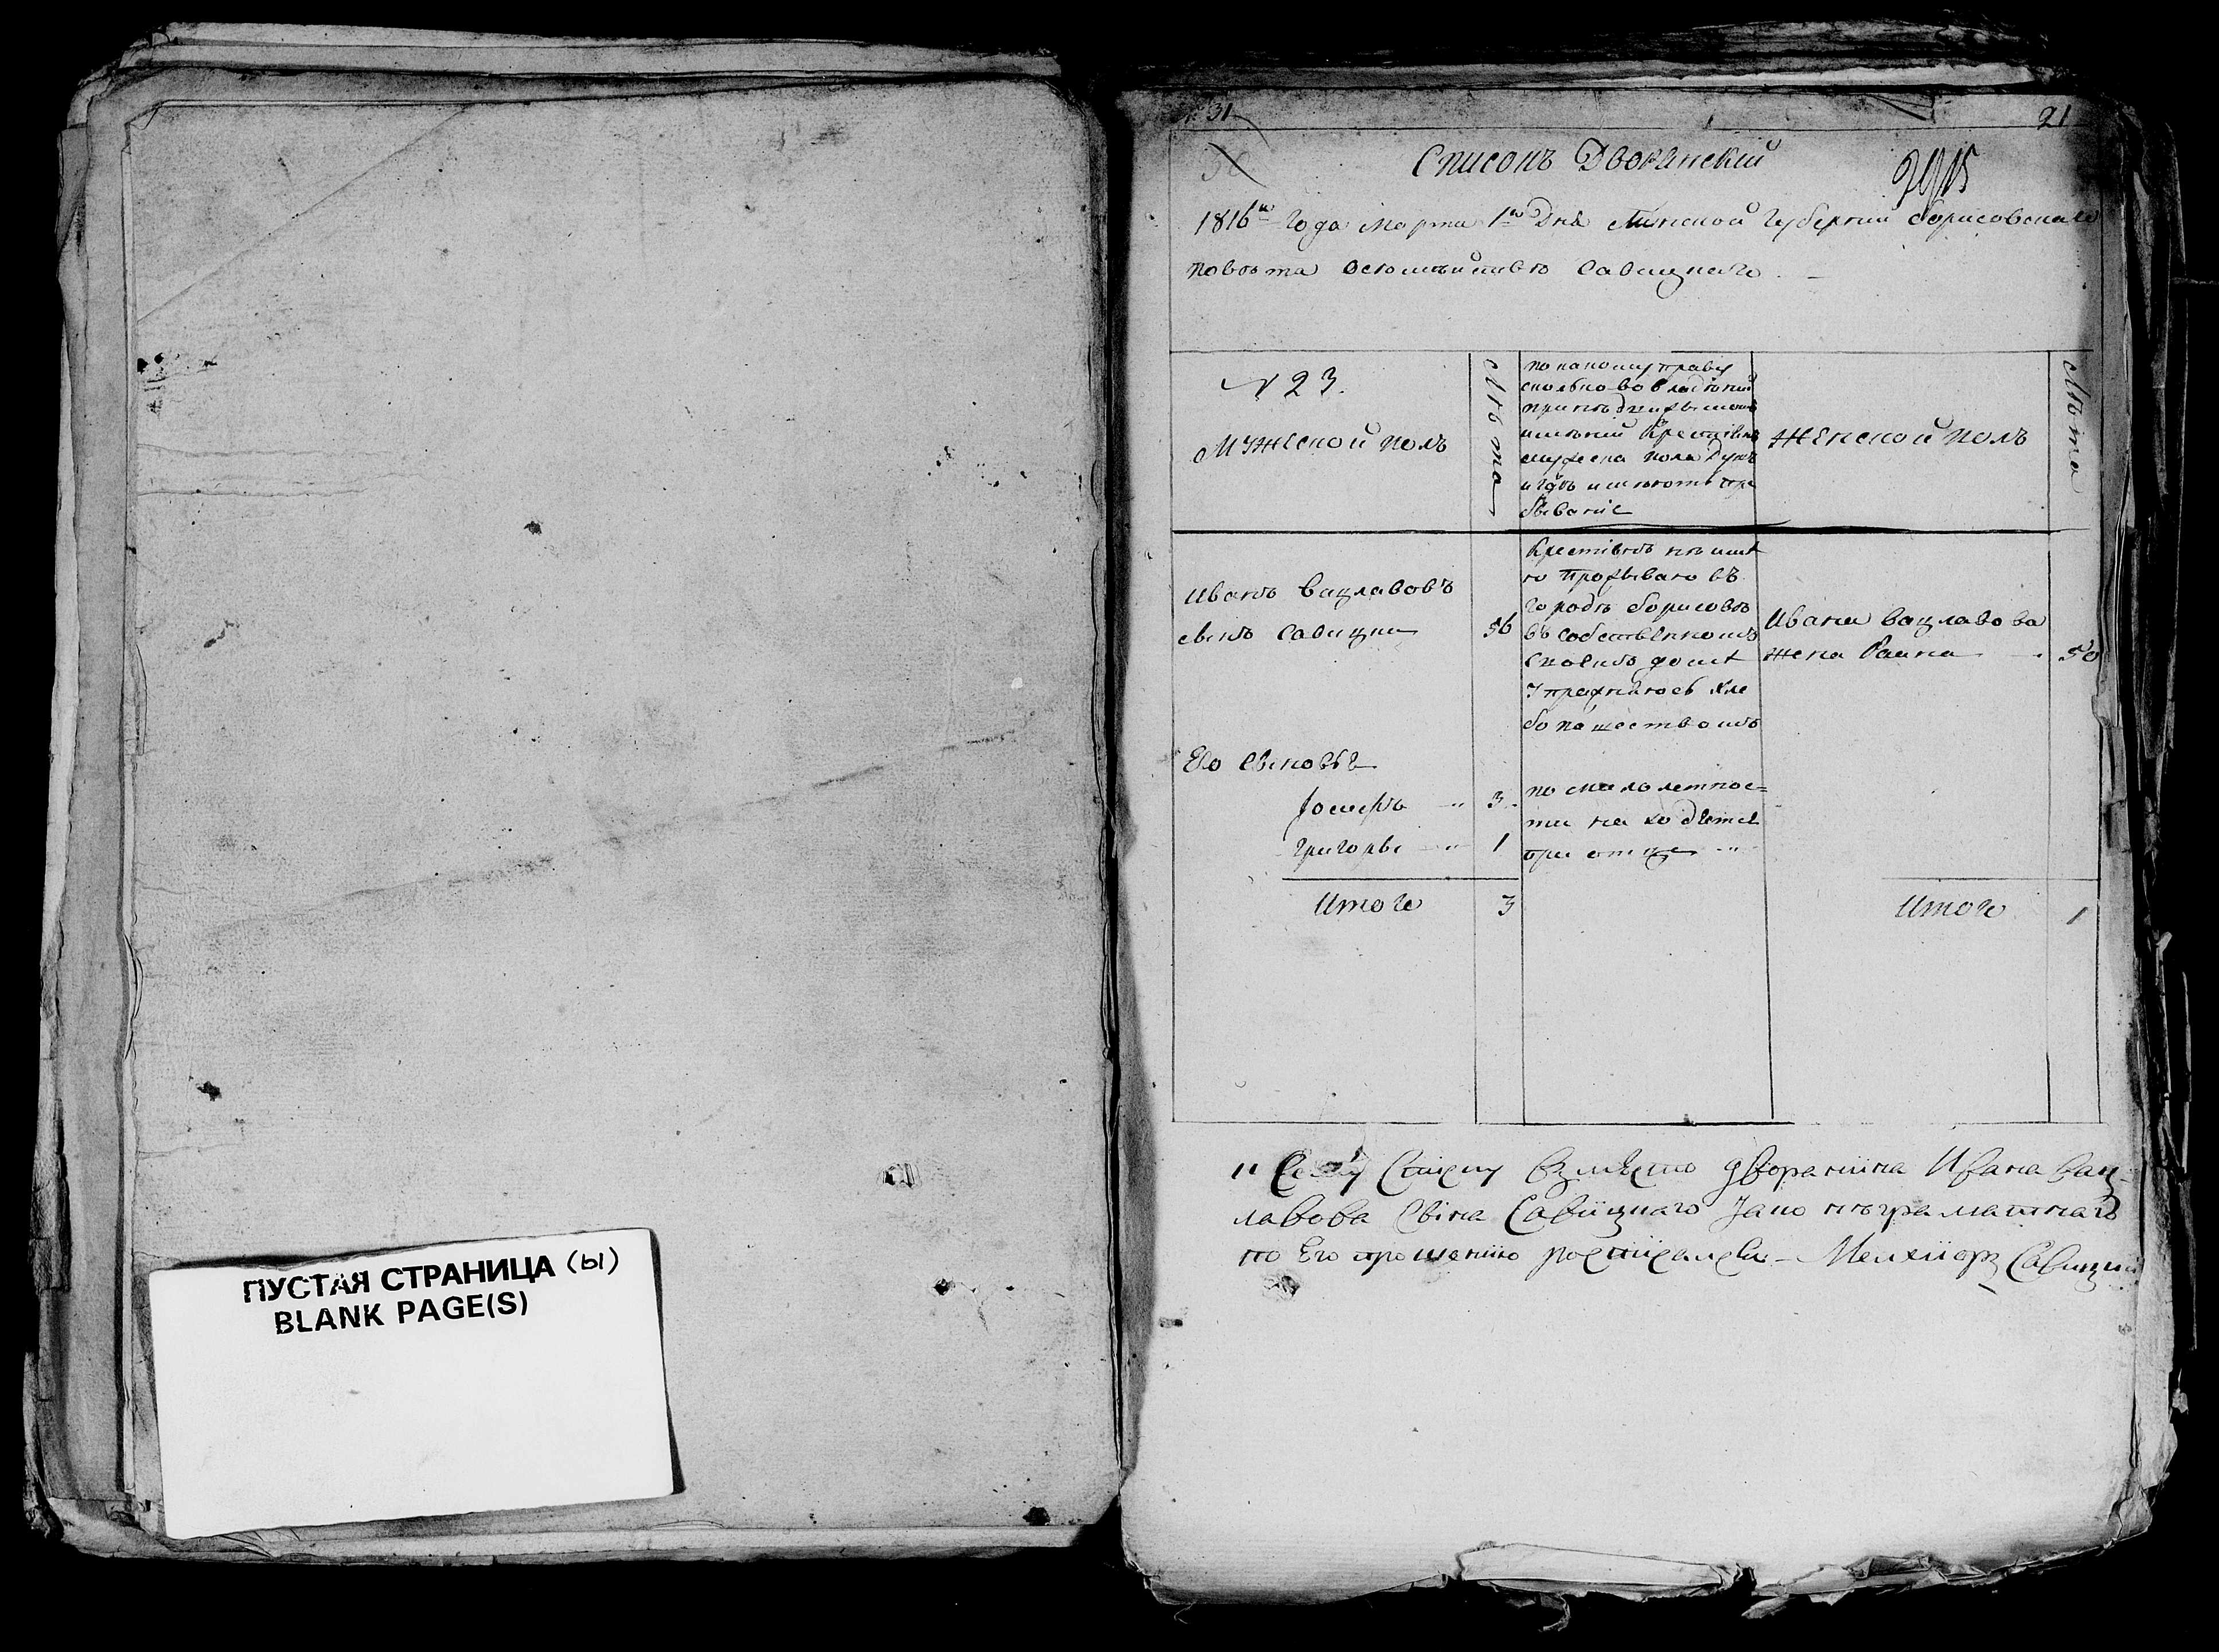 ПУСТАЯ СТРАНИЦА (ы)
BLANK PAGE(S)
№ 31
21
Списокъ Дворянский
1816го Года Марта 1го Дня Минской Губернии борисовскаго
повѣта о семействѣ Савицкаго
№ 23.
Мужеской полъ
Лѣта
по какому праву
сколько во владѣнии
крестьянъ
мужеска пола душъ
и гдѣ имѣютъ пре
бывание
Женской полъ
Лѣта
Иванъ Вацлавовъ
сынъ Савицки
56
Крестьянъ не имѣ
ю Прозываю въ
городѣ борисовѣ
въ собственномъ
своемъ домѣ
Упражняюсь хле
бопашествомъ
Ивана Вацлавова
жена Раина
50
Его Сыновья
Іосифъ 3
Григорѣ 1
по малолетнос=
ти находятся
при отце
Итого 3
Итого 1
Сему Списку вмѣсто дворянина Ивана Вац-
лавова Сына Савицкаго Јако неграматнаго
по Его прошению росписалсы - Мелхиоръ Савицки